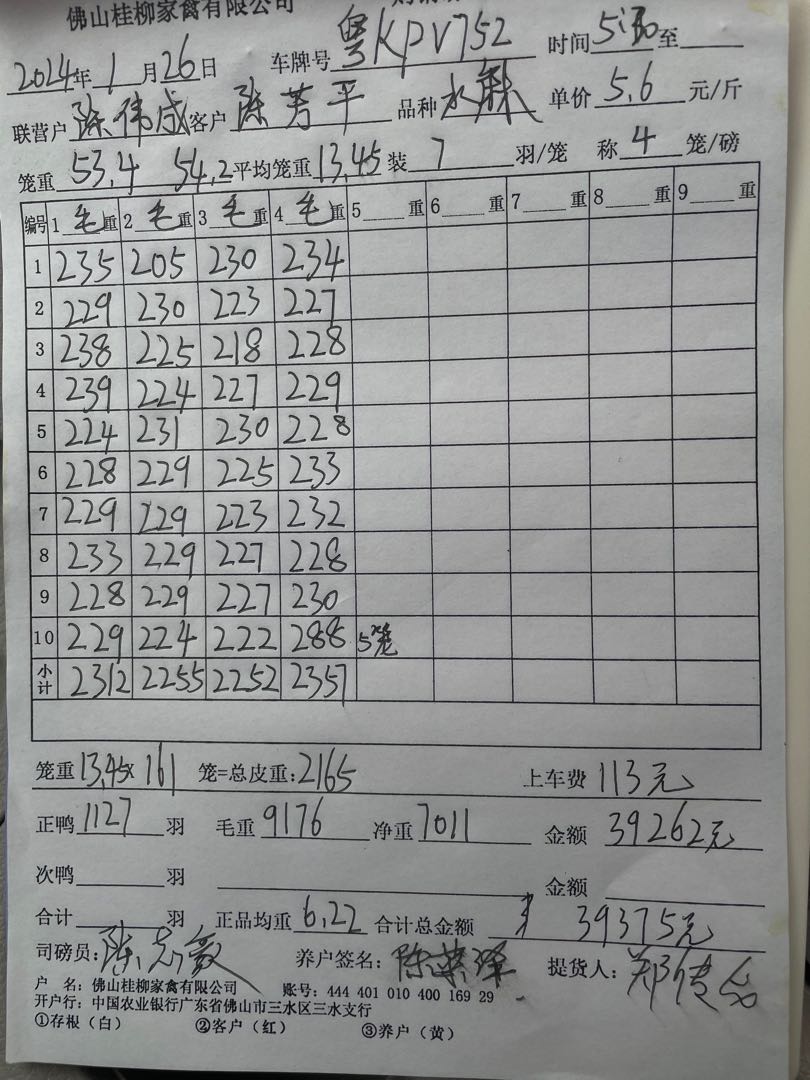 佛山桂柳家禽有限公司
2024年 1月26日 车牌号 粤KPV752 时间 5:30 至
联营户 陈伟成 客户 陈芳平 品种 水鸭 单价 5.6 元/斤
笼重 53.4 54.2 平均笼重 13.45 装 7 羽/笼 称 4 笼/磅
编号 1毛重 2毛重 3毛重 4毛重 5 重 6 重 7 重 8 重 9 重
1 235 205 230 234
2 229 230 223 227
3 238 225 218 228
4 239 224 227 229
5 224 231 230 228
6 228 229 225 233
7 229 229 223 232
8 233 229 227 228
9 228 229 227 230
10 229 224 222 288 5笼
小计 2312 2255 2252 2357
笼重 13.45× 161 笼=总皮重:2165 上车费 113元
正鸭 1127 羽 毛重 9176 净重 7011 金额 39262元
次鸭 羽 金额
合计 羽 正品均重 6.22 合计总金额 39375元
司磅员: 养户签名: 陈荣泽 提货人:
户 名: 佛山桂柳家禽有限公司 账号: 444 401 010 400 169 29
开户行: 中国农业银行广东省佛山市三水区三水支行
①存根(白) ②客户(红) ③养户(黄)